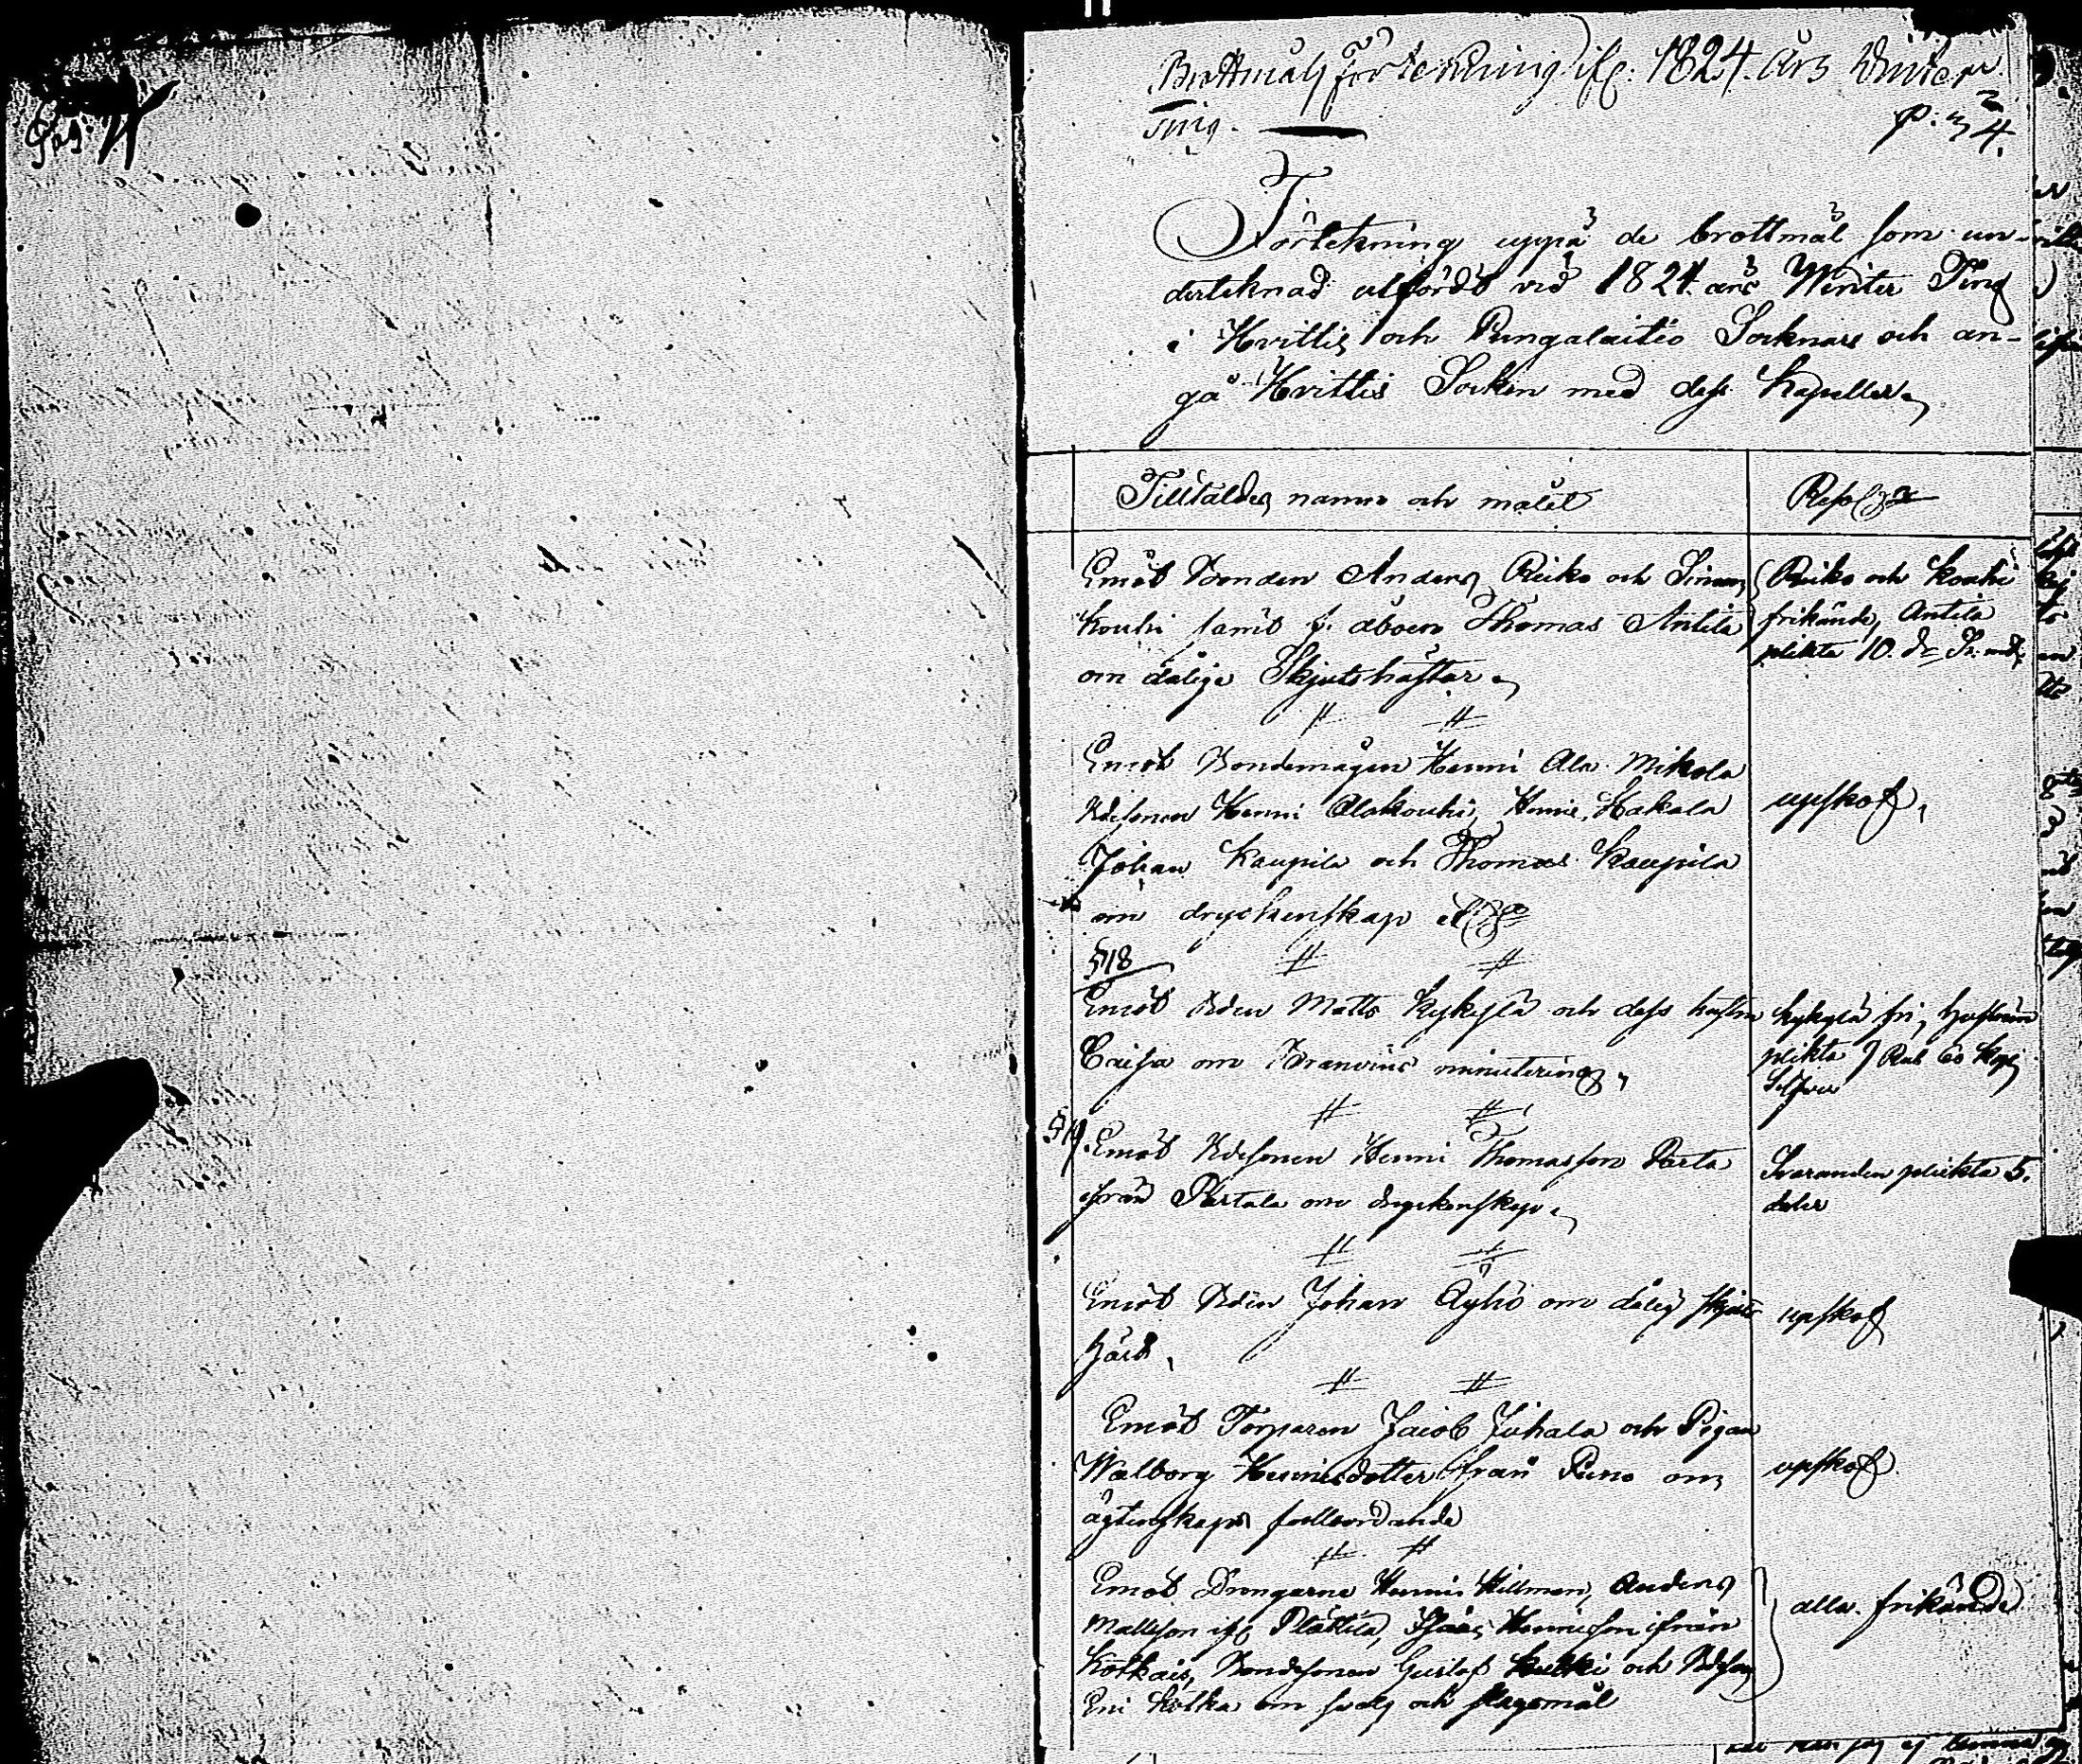 Pag:
Brottmåls förtekning ifr: 1824. Års Winter
Ting.
p: 4.
Förtekning uppå de brottmål som un-
derteknad utfördt vid 1824 års Winter Ting
i Hvittis och Pungalaitio Socknar och an-
gå Hvittis Socken med dess Kapeller
Tilltaldes namn och målet
Resol
Emot Bonden Anders Reiko och Simon
Kouhi samt f. åboen Thomas Antila
om dålige Skjutshästar
Reiko och Kouhi
frikände, Antila
plikta 10. dr Sr. mt
Emot Bondemågen Henric Ala Mikola
Bdesonen Henric Alakouhi, Henric Hakala
Johan Kaupila och Thomas Kaupila
om dryckenskap
upskof,
§18
Emot Bden Matts Kykylä och dess hustru
Caisa om Brännvins minutering,
Kykylä fri, hustrun
plikta 7 Rub 60 Kop
Silfver
§ 19.
Emot Bdesonen Henric Thomasson Perta
ifrån Pertala om dryckenskap
Svaranden plikta 5.
daler
Emot Bden Johan Äyhö om dålig skjuts
häst,
upskof
Emot Torparen Jacob Juhala och Pigan
Walborg Henricsdotter ifrån Puno om
ägtenskaps fullbordande
upskof
Emot Drengarne Henric Hillman, Anders
Mattsson ifr Plättilä, Isaac Henricsson ifrån
Kotkais, Bondesonen Gustaf och Bdeson
Eric Kotka om och slagsmål
alla frikände